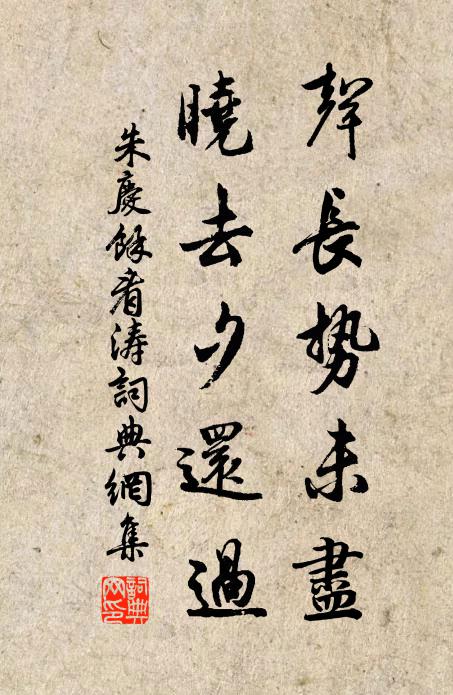 聲長勢未盡
曉去夕還過
朱慶餘看濤詞典網集
詞典網印